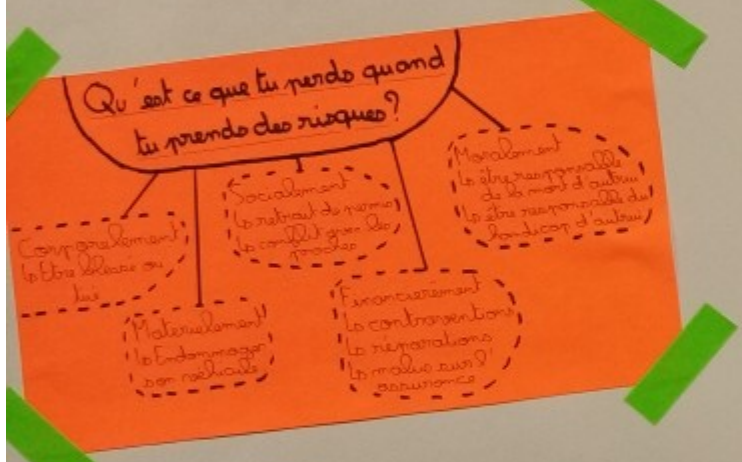 Qu'est ce que tu perds quand
tu prends des risques?
Corporelement
↳ Etre blessé ou
tué
Materielement
↳ Endommager
son véhicule
Socialement
↳ retrait de permis
↳ conflit avec les
proches
Financierement
↳ contraventions
↳ réparations
↳ malus sur l'
assurance
Moralement
↳ être responsable
de la mort d'autrui
↳ être responsable du
handicap d'autrui